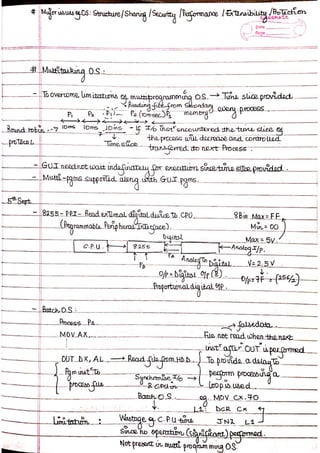 * Major issues of OS: Structure / Sharing / Security / Performance / Extensibility / Protection
Date
Page
# Multitasking O.S:
- To overcome limitations of multiprogramming O.S. → Time slice provided
Reading file from secondary memory every process.
P1 P2 P3 P4 (10msec) P5
Round robin → 10ms 10ms 10ms - If I/O inst encountered the time slice of
protocol Time slice the process will decrease and controlled
transferred to next process.
- GUI need not wait indefinitely for execution since time slice provided.
- Multi-pgms supported along with GUI pgms.
5th Sept
- 8255 - PPI - Read external digital device to CPU. 8Bit Max = FF
(Programmable Peripheral Interface) Min = 00
Digital Max = 5V
CPU 8255 Analog I/p.
PB PA Analog to Digital V = 2.5V
O/p = Digital O/p (8) O/p = 7F → (256/2)
Proportional digital O/P.
- Batch O.S:
Process Pa
MOV AX, false data
File not read when the next
inst after OUT is performed
OUT DX, AL → Read file from H.D. To provide a delay to
Pgm inst to Synchronize I/O → perform processing a
process file & CPU in loop is used
Batch O.S eg. MOV CX, 70
L1: DCR CX
Limitation : Wastage of CPU time JNZ L1
Since no operation (significant) performed.
Not present in multi programming OS